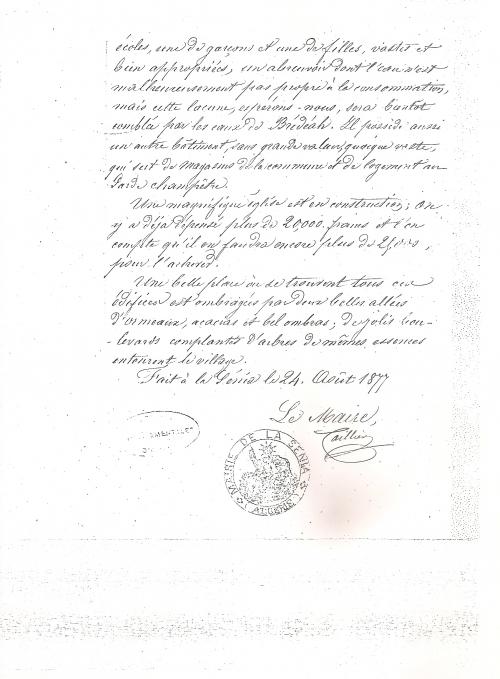 écoles, une de garçons et une de filles, vastes et
bien appropriées, un abreuvoir dont l'eau n'est
malheureusement pas propre à la consommation,
mais cette lacune, espérons-nous, sera bientôt
comblée par les eaux de Brédéah. Il possède aussi
un autre bâtiment, sans grande valeur, quoique vaste,
qui sert de Magasins de la commune et de logement au
Garde champêtre.
Une magnifique église est en construction; on
y a déjà dépensé plus de 20,000 francs et l'on
compte qu'il en faudra encore plus de
pour l'achever.
Une belle place où se trouvent tous ces
édifices est ombragée par deux belles allées
d'ormeaux, acacias et bel ombras; de jolis bou-
-levards complantés d'arbres de mêmes essences
entourent le village.
Fait à la Sénia le 24 Août 1877
Le Maire,
MAIRIE DE LA SENIA
ALGERIE